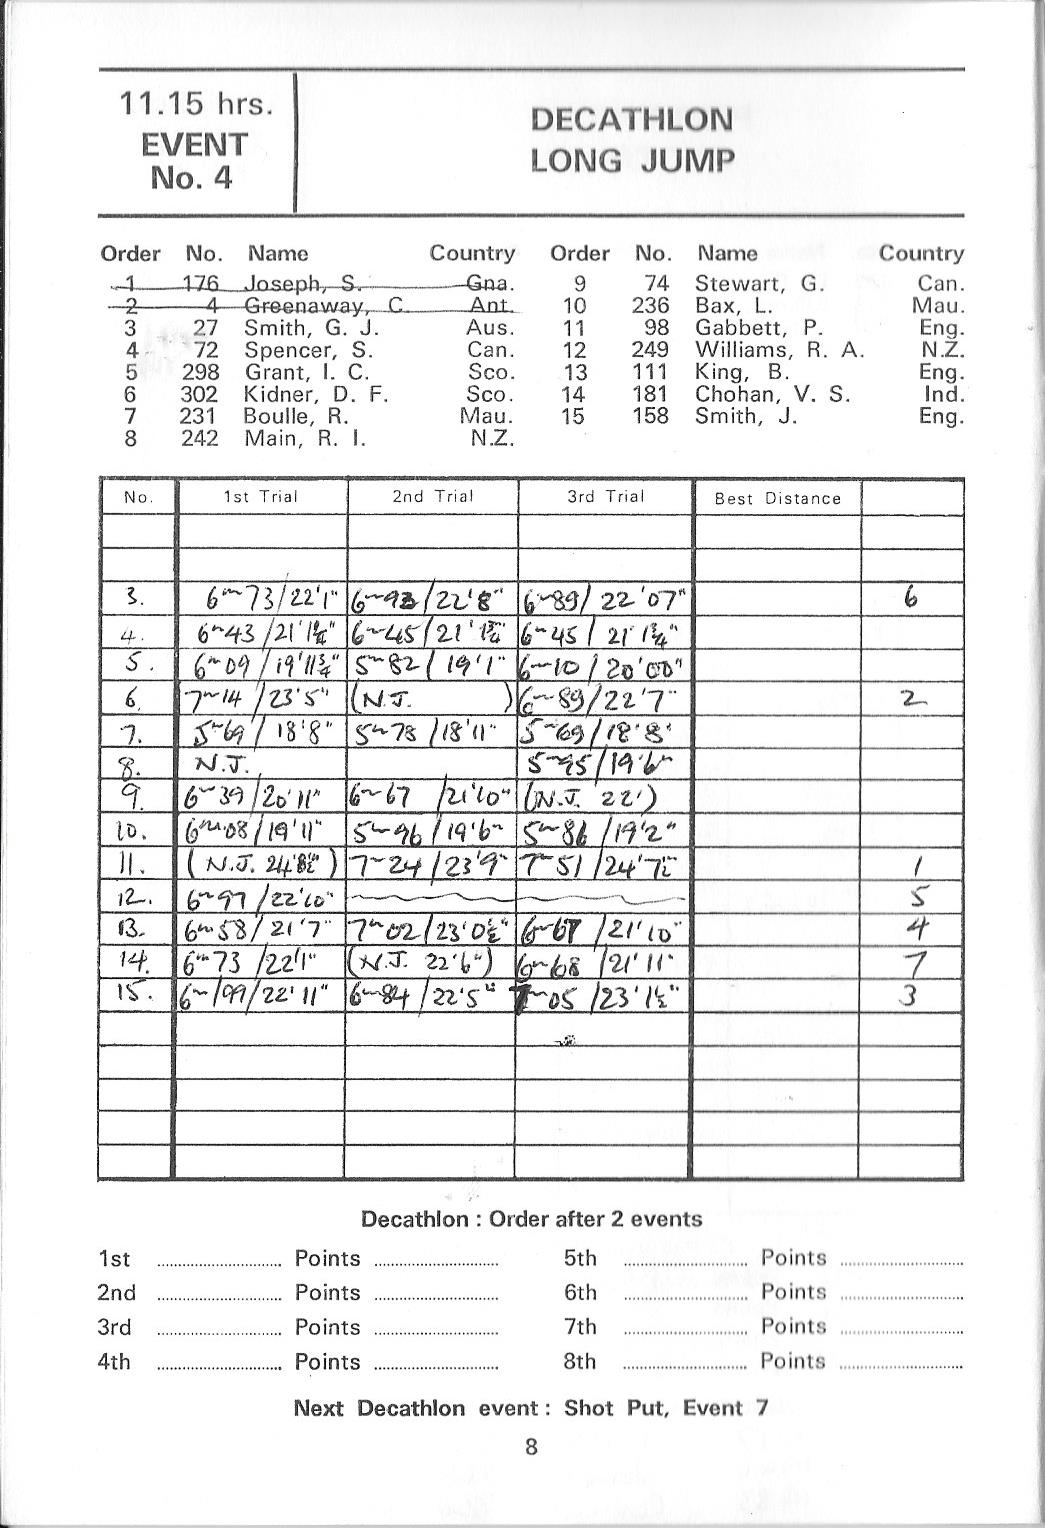 11.15 hrs.
EVENT
No. 4
DECATHLON
LONG JUMP
Order No. Name Country Order No. Name Country
1 176 Joseph, S. Gna. 9 74 Stewart, G. Can.
2 4 Greenaway, C. Ant. 10 236 Bax, L. Mau.
3 27 Smith, G. J. Aus. 11 98 Gabbett, P. Eng.
4 72 Spencer, S. Can. 12 249 Williams, R. A. N.Z.
5 298 Grant, I. C. Sco. 13 111 King, B. Eng.
6 302 Kidner, D. F. Sco. 14 181 Chohan, V. S. Ind.
7 231 Boulle, R. Mau. 15 158 Smith, J. Eng.
8 242 Main, R. I. N.Z.
No. 1st Trial 2nd Trial 3rd Trial Best Distance
3. 6m73/22'1" 6m93/22'8" 6m89/22'07" 6
4. 6m43/21'1¼" 6m45/21'1¾" 6m45/21'1¾"
5. 6m09/19'11¾" 5m82/19'1" 6m10/20'00"
6. 7m14/23'5" (N.J. ) 6m89/22'7" 2
7. 5m69/18'8" 5m78/18'11" 5m69/18'8"
8. N.J. 5m95/19'6"
9. 6m39/20'11" 6m67/21'10" (N.J. 22')
10. 6m08/19'11" 5m96/19'6" 5m86/19'2"
11. (N.J. 24'8½") 7m24/23'9" 7m51/24'7½" 1
12. 6m97/22'10" 5
13. 6m58/21'7" 7m02/23'0½" 6m67/21'10" 4
14. 6m73/22'1" (N.J. 22'6") 6m68/21'11" 7
15. 6m/99/22'11" 6m84/22'5" 7m05/23'1½" 3
Decathlon : Order after 2 events
1st .......... Points .......... 5th .......... Points ..........
2nd .......... Points .......... 6th .......... Points ..........
3rd .......... Points .......... 7th .......... Points ..........
4th .......... Points .......... 8th .......... Points ..........
Next Decathlon event : Shot Put, Event 7
8